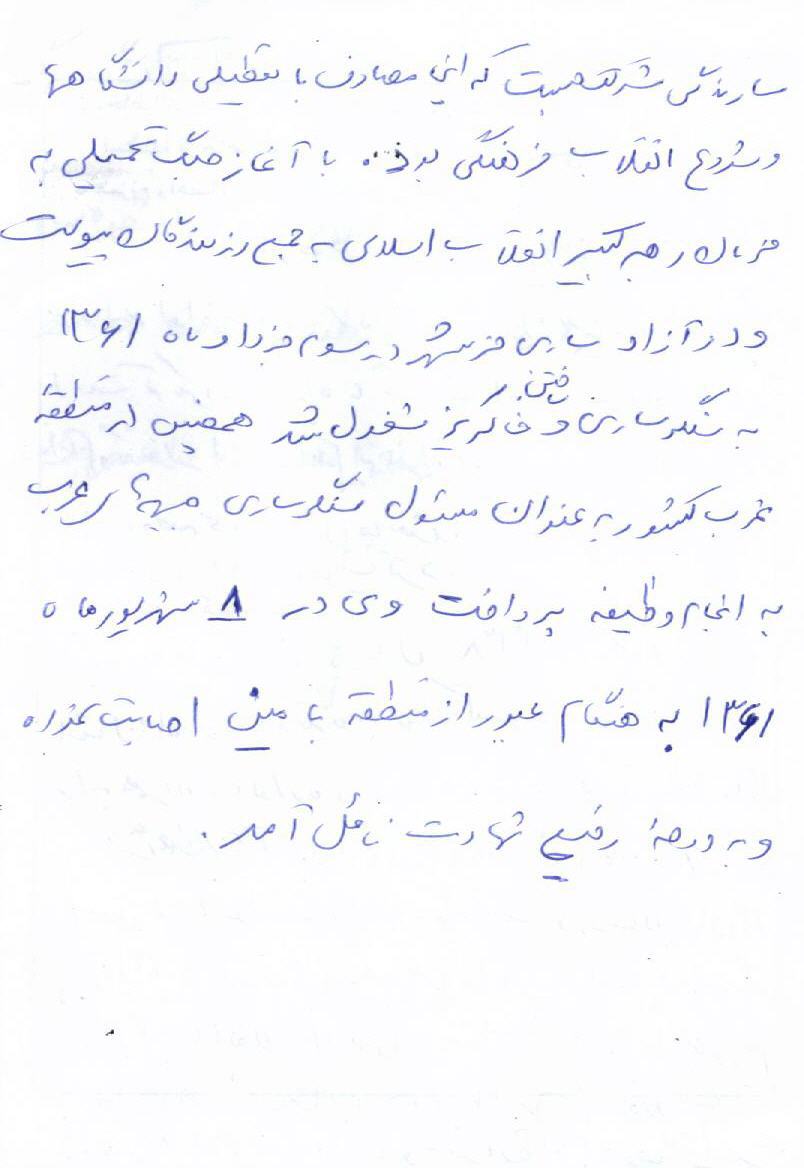 سازندگی شرکت جست که این مصادف با تعطیلی دانشگاهها
و شروع انقلاب فرهنگی بود. با آغاز جنگ تحمیلی به
فرمان رهبر کبیر انقلاب اسلامی به جمع رزمندگان پیوست
و در آزاد سازی خرمشهر در سوم خرداد ماه ۱۳۶۱
به سنگر سازی و خاکریز مشغول شد همچنین در منطقه
غرب کشور به عنوان مسئول سنگر سازی جبهه غرب
به انجام وظیفه پرداخت وی در ۸ شهریور ماه
۱۳۶۱ به هنگام عبور از منطقه با مین اصابت نموده
و به درجۀ رفیع شهادت نائل آمد.